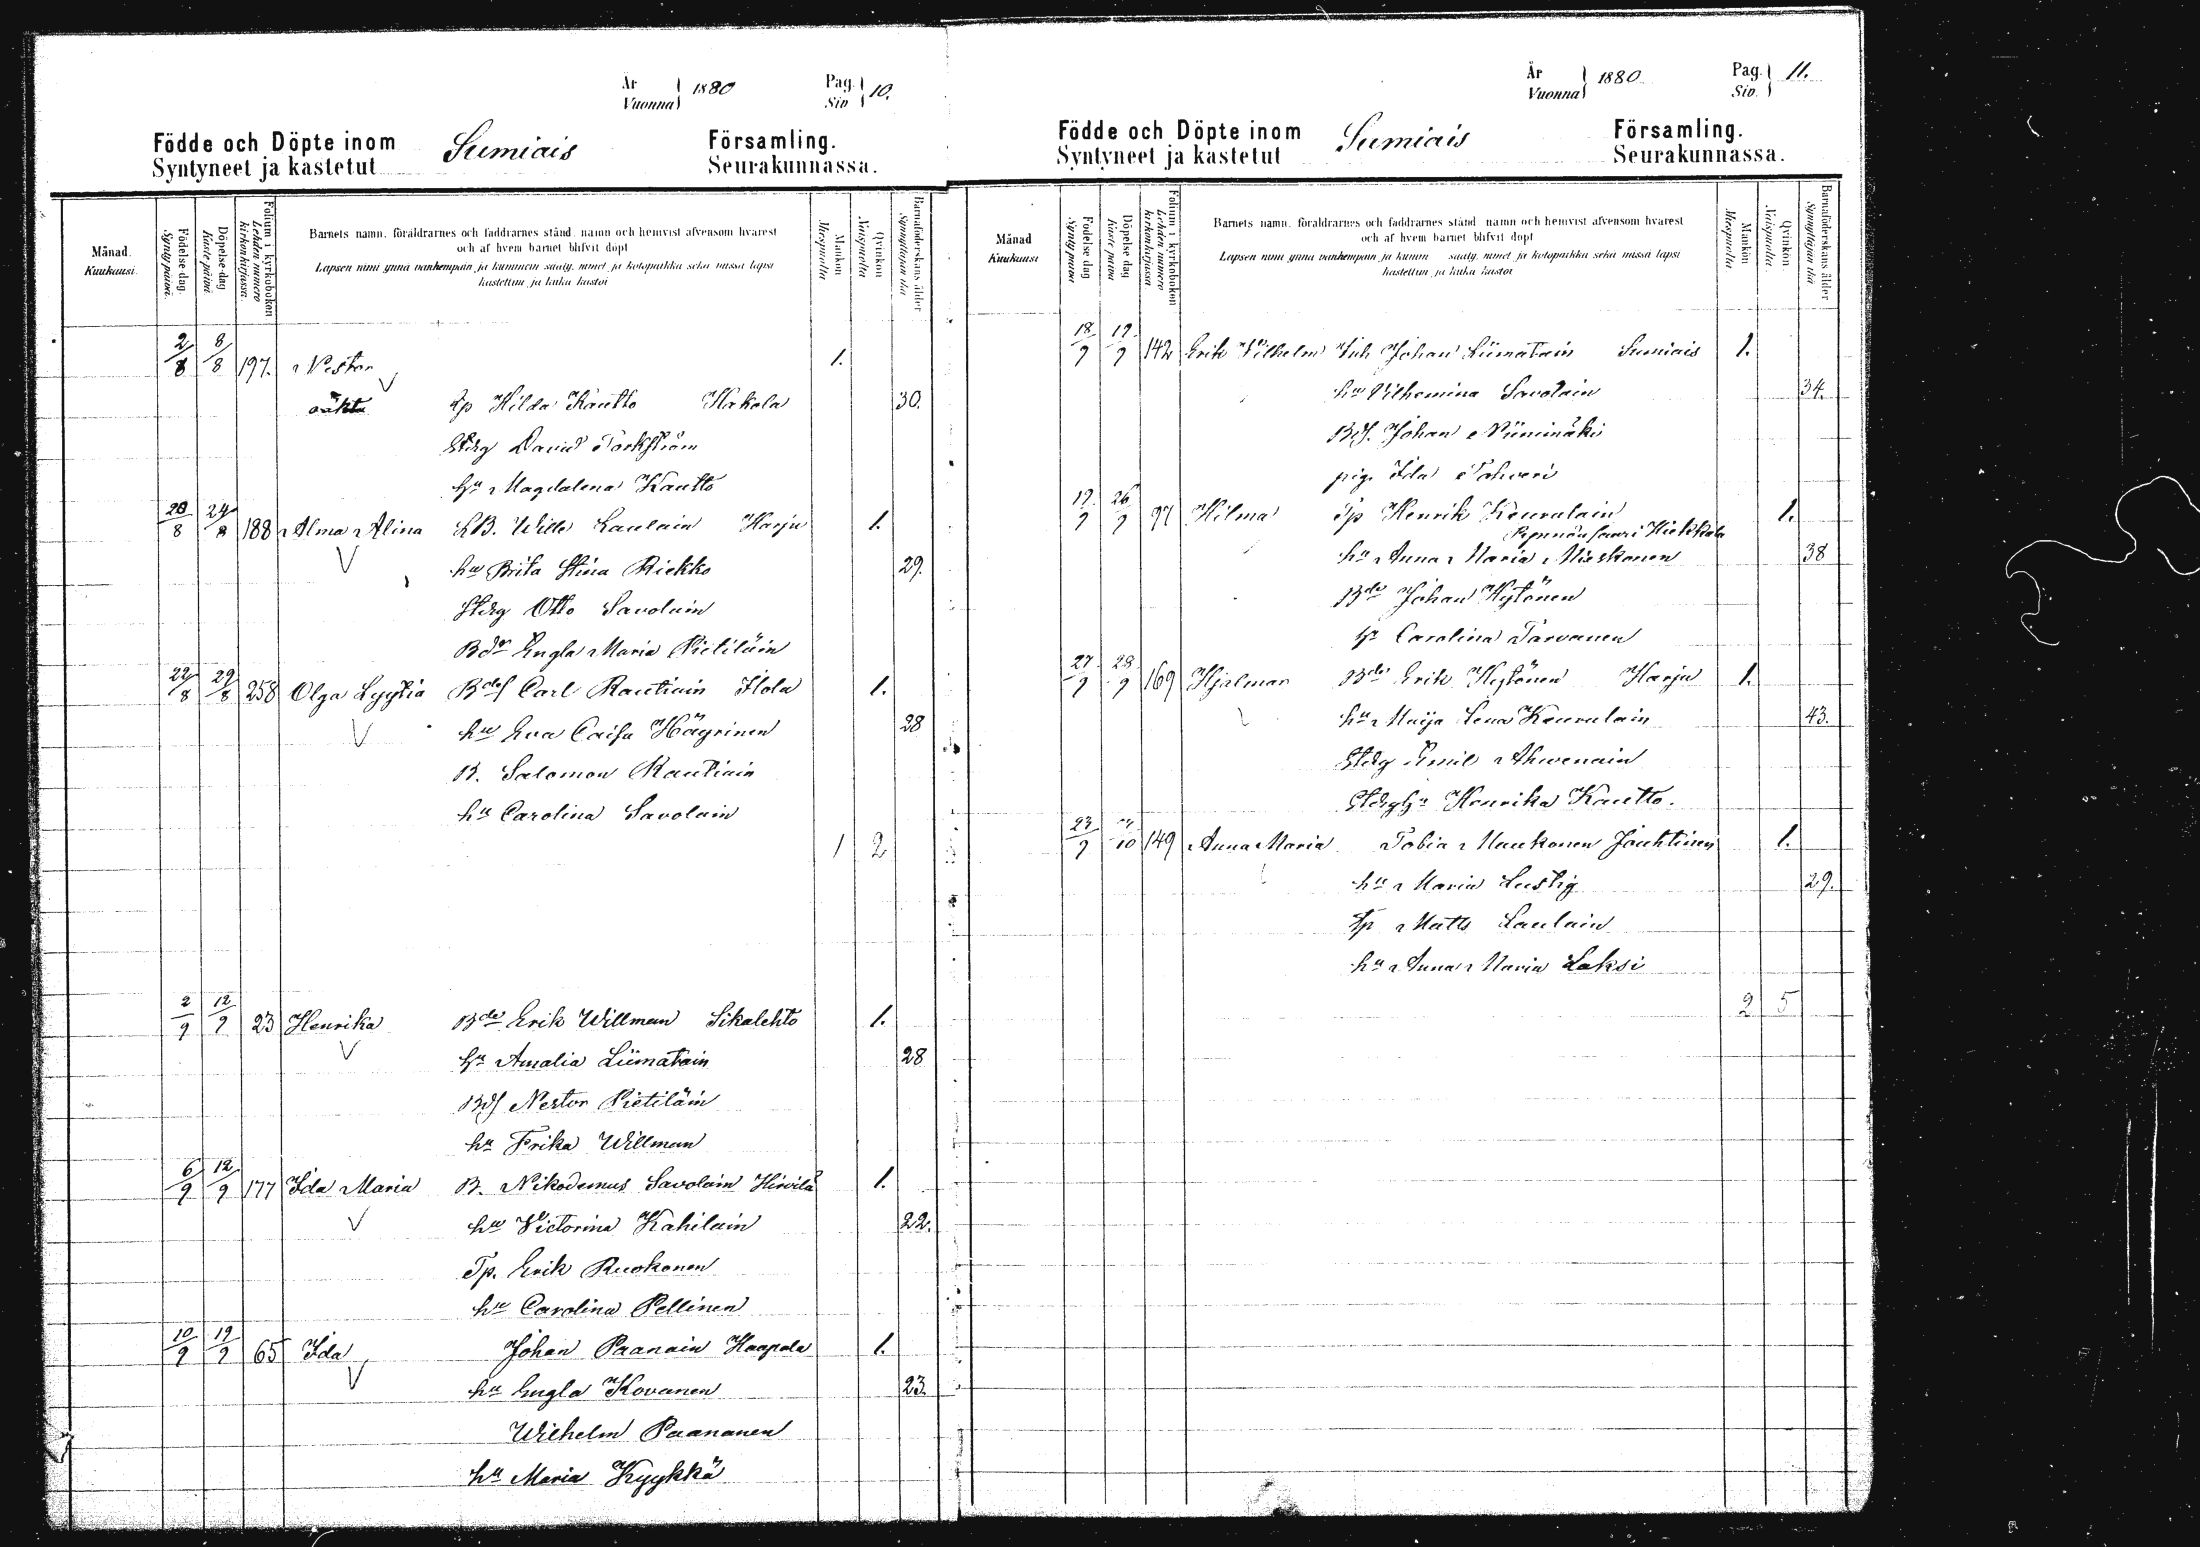 År Vuonna } 1880 Pag. Siv. } 10.
Födde och Döpte inom Sumiais Församling.
Syntyneet ja kastetut Seurakunnassa.
Månad. Kuukausi.
Födelse dag. Syntypäivä.
Döpelse-dag Kastepäivä
Folium i kyrkoboken Lehden numero kirkonkirjassa.
Barnets namn, föräldrarnes och faddrarnes stånd, namn och hemvist äfvensom hvarest
och af hvem barnet blifvit döpt
Lapsen nimi ynnä vanhempain ja kummein sääty, nimet ja kotopaikka sekä missä lapsi
kastettiin ja kuka kastoi
Mankön Miespuolta
Qvinkön Naispuolta
Barnaföderskans ålder Synnyttäjän ikä
2/8 8/8 197. Nestor 1.
oäkta Hilda Kautto Hakola 30.
Stdrg David Torkström
hu Magdalena Kautto
20/8 24/8 188 Alma Alina LB. Wille Laulain Harju 1.
hu Brita Stina Riekko 29.
Stdrg Otto Savolain
Bdr Engla Maria Pietiläin
22/8 29/8 258 Olga Lyytia Bds Carl Rautiain Ilola 1.
hu Eva Caisa Häyrinen 28
B. Salomon Rautiain
hu Carolina Savolain
1 2
2/9 12/9 23 Henrika Bde Erik Willman Sikalehto 1.
hu Amalia Liimatain 28
Bds Nestor Pietiläin
hu Frika Willman
6/9 12/9 177 Ida Maria B. Nikodemus Savolain Hirvilä 1.
hu Victorina Kahilain 22.
Tp. Erik Ruokonen
hu Carolina Pellinen
10/9 19/9 65 Ida Johan Paanain Haapala 1.
hu Engla Kovanen 23.
Wilhelm Paananen
hu Maria Kyykkä
År Vuonna } 1880 Pag. Siv. } 11.
Födde och Döpte inom Sumiais Församling.
Syntyneet ja kastetut Seurakunnassa.
Månad Kuukausi
Födelse dag Syntypäivä
Döpelse dag Kastepäivä
Folium i kyrkoboken Lehden numero kirkonkirjassa
Barnets namn, föräldrarnes och faddrarnes stånd, namn och hemvist äfvensom hvarest
och af hvem barnet blifvit döpt
Lapsen nimi ynnä vanhempain ja kumm sääty, nimet ja kotopaikka sekä missä lapsi
kastettiin ja kuka kastoi
Mankön Miespuolta
Qvinkön Naispuolta
Barnaföderskans ålder Synnyttäjän ikä
18/9 19/9 142 Erik Vilhelm Inh Johan Liimatain Sumiais 1.
hu Vilhemina Savolain 34.
Bds. Johan Niinimäki
pig. Ida Tahveri
19/9 26/9 97 Hilma Tp Henrik Keuvulain 1.
Hiekkala
hu Anna Maria Mieskonen 38
Bde Johan Hytönen
hu Carolina Tarvanen
27/9 28/9 169 Hjalmar Bde Erik Hytönen Harju 1.
hu Maija Lena Keuvulain 43.
Stdrg Emil Ahvenain
Stdrg hu Henrika Kautto.
23/9 /10 149 Anna Maria Tobia Maukonen Jouhtinen 1.
hu Maria Lustig 29.
Tp Matts Laulain
hu Anna Maria Laksi
2 5